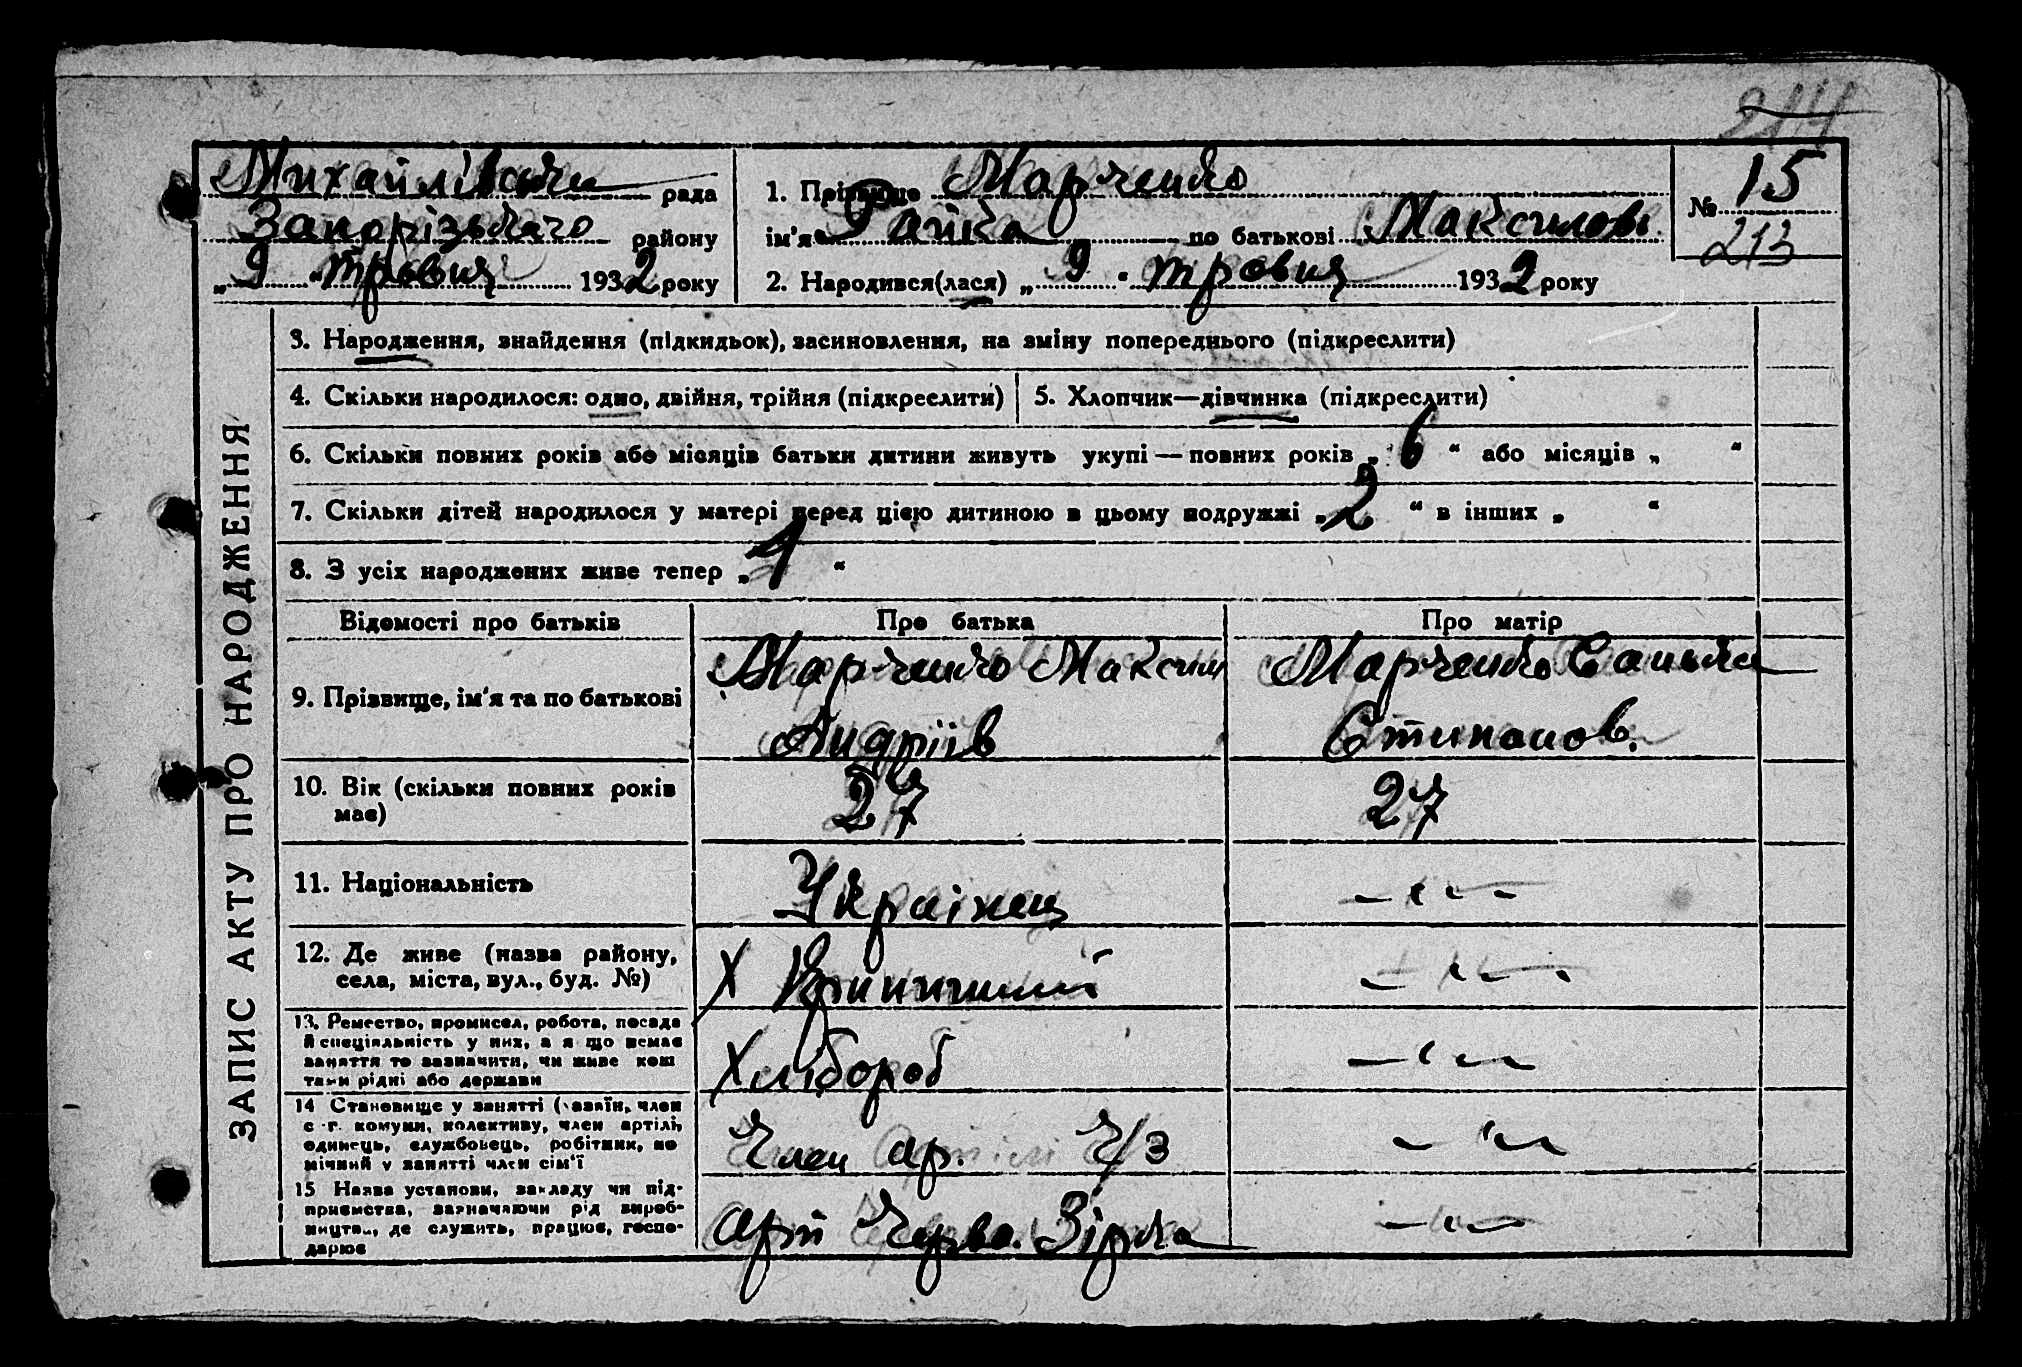 214
Михайлівська рада
Запорізького району
„ 9 “ травня 1932 року
1. Прізвище Марченко
ім'я Раїка по батькові Максимовн.
2. Народився(лася) „ 9 . травня 1932 року
№ 15
213
ЗАПИС АКТУ ПРО НАРОДЖЕННЯ
3. Народження, знайдення (підкидьок), засиновлення, на зміну попереднього (підкреслити)
4. Скільки народилося: одно, двійня, трійня (підкреслити)
5. Хлопчик—дівчинка (підкреслити)
6. Скільки повних років або місяців батьки дитини живуть укупі — повних років „ 6 “ або місяців „ “
7. Скільки дітей народилося у матері перед цією дитиною в цьому подружжі „ 2 “ в інших „ “
8. З усіх народжених живе тепер „ 1 “
Відомості про батьків
Про батька
Про матір
9. Прізвище, ім'я та по батькові
Марченко Максим
Андріїв
Марченко Санька
Степанов.
10. Вік (скільки повних років
має)
27
27
11. Національність
Українец
— „ —
12. Де живе (назва району,
села, міста, вул., буд. №)
Х Криничний
— „ —
13. Ремество, промисел, робота, посада
й спеціяльність у них, а я що немає
заняття то зазначити, чи живе кош
тами рідні або держави
Хлібороб
— „ —
14 Становище у занятті (хазяїн, член
с.-г. комуни, колективу, член артілі,
одинець, службовець, робітник, по
мічний у занятті член сім'ї
Член ар. Ч/З
— „ —
15 Назва установи, закладу чи під-
приємства, зазначаючи рід вироб-
ництва, де служить, працює, госпо-
дарює
Арт Черво. Зірка
— „ —